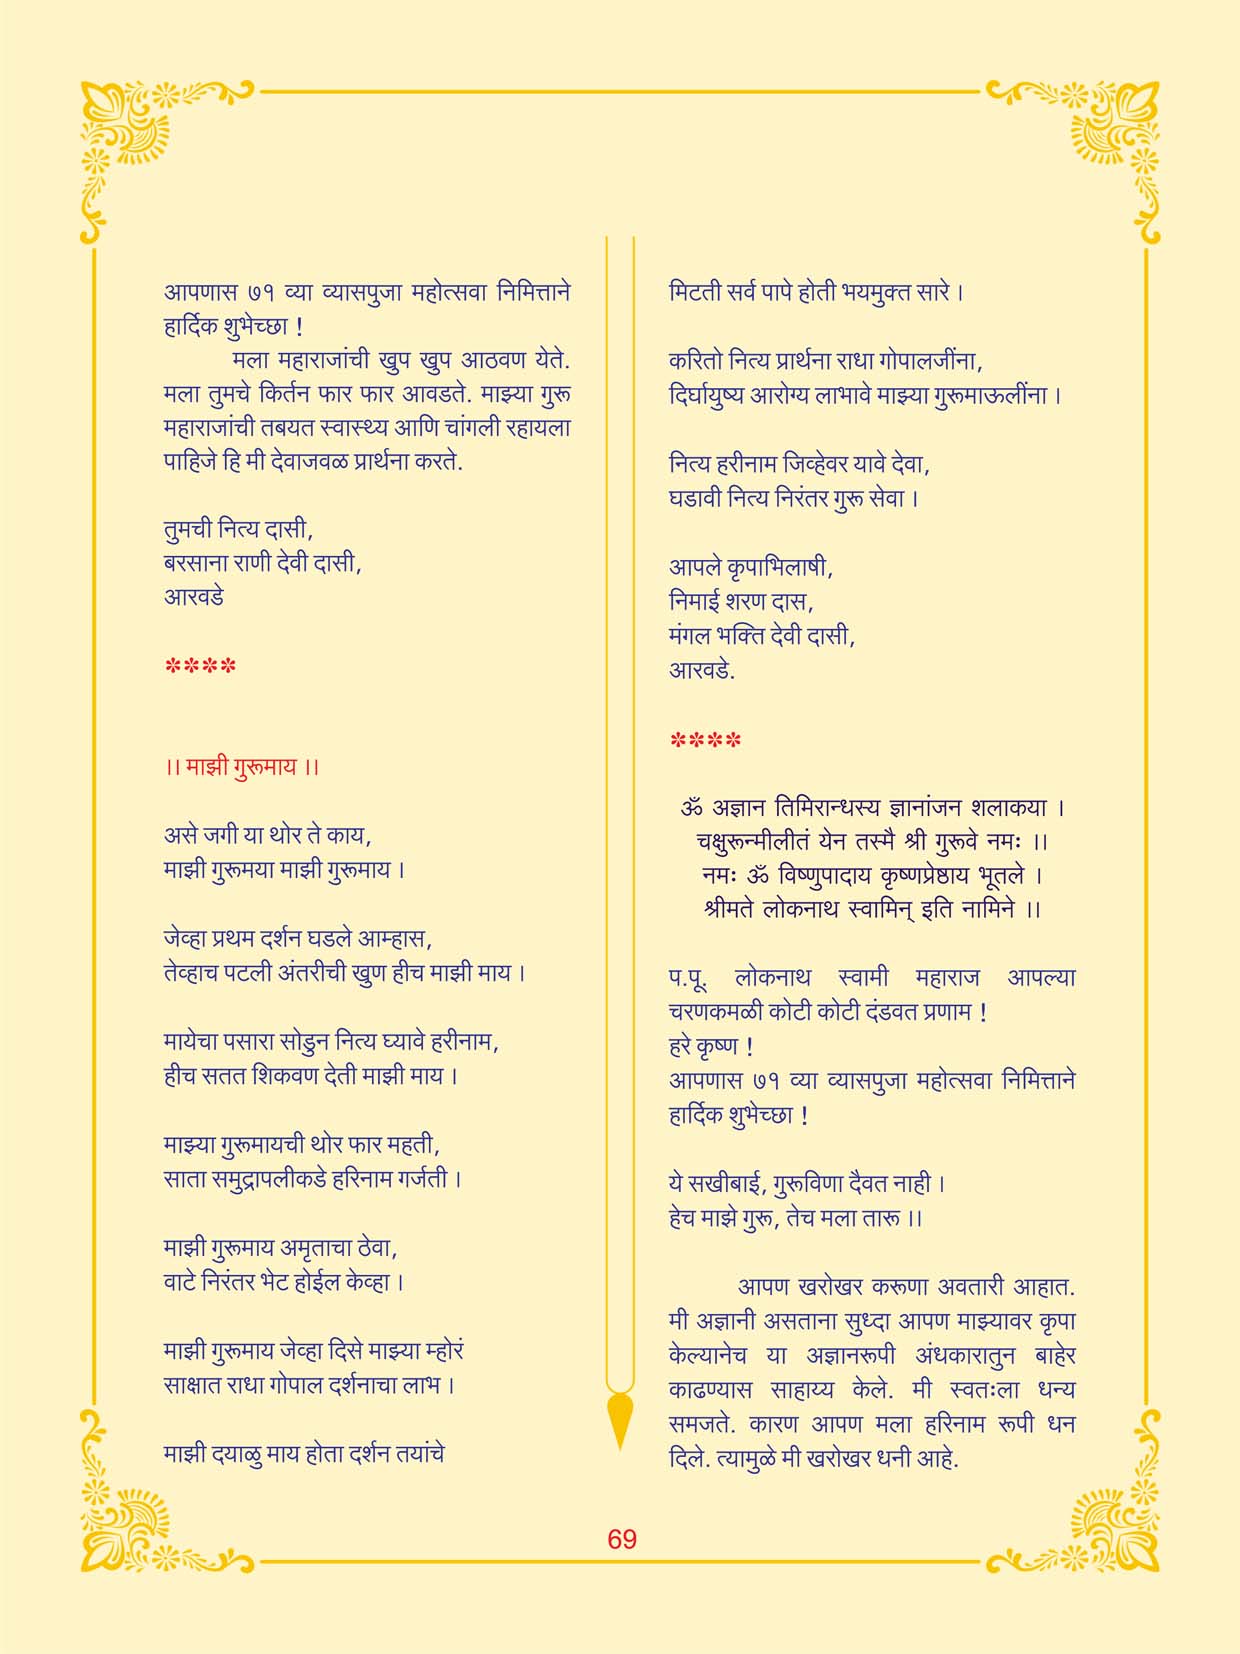 आपणास ७१ व्या व्यासपुजा महोत्सवा निमित्ताने
हार्दिक शुभेच्छा !
मला महाराजांची खुप खुप आठवण येते.
मला तुमचे किर्तन फार फार आवडते. माझ्या गुरू
महाराजांची तबयत स्वास्थ्य आणि चांगली रहायला
पाहिजे हि मी देवाजवळ प्रार्थना करते.
तुमची नित्य दासी,
बरसाना राणी देवी दासी,
आरवडे
****
।। माझी गुरूमाय ।।
असे जगी या थोर ते काय,
माझी गुरूमया माझी गुरूमाय ।
जेव्हा प्रथम दर्शन घडले आम्हास,
तेव्हाच पटली अंतरीची खुण हीच माझी माय ।
मायेचा पसारा सोडुन नित्य घ्यावे हरीनाम,
हीच सतत शिकवण देती माझी माय ।
माझ्या गुरूमायची थोर फार महती,
साता समुद्रापलीकडे हरिनाम गर्जती ।
माझी गुरूमाय अमृताचा ठेवा,
वाटे निरंतर भेट होईल केव्हा ।
माझी गुरूमाय जेव्हा दिसे माझ्या म्होरं
साक्षात राधा गोपाल दर्शनाचा लाभ ।
माझी दयाळु माय होता दर्शन तयांचे
मिटती सर्व पापे होती भयमुक्त सारे ।
करितो नित्य प्रार्थना राधा गोपालजींना,
दिर्घायुष्य आरोग्य लाभावे माझ्या गुरूमाऊलींना ।
नित्य हरीनाम जिव्हेवर यावे देवा,
घडावी नित्य निरंतर गुरू सेवा ।
आपले कृपाभिलाषी,
निमाई शरण दास,
मंगल भक्ति देवी दासी,
आरवडे.
****
ॐ अज्ञान तिमिरान्धस्य ज्ञानांजन शलाकया ।
चक्षुरून्मीलीतं येन तस्मै श्री गुरूवे नमः ।।
नमः ॐ विष्णुपादाय कृष्णप्रेष्ठाय भूतले ।
श्रीमते लोकनाथ स्वामिन् इति नामिने ।।
प.पू. लोकनाथ स्वामी महाराज आपल्या
चरणकमळी कोटी कोटी दंडवत प्रणाम !
हरे कृष्ण !
आपणास ७१ व्या व्यासपुजा महोत्सवा निमित्ताने
हार्दिक शुभेच्छा !
ये सखीबाई, गुरूविणा दैवत नाही ।
हेच माझे गुरू, तेच मला तारू ।।
आपण खरोखर करूणा अवतारी आहात.
मी अज्ञानी असताना सुध्दा आपण माझ्यावर कृपा
केल्यानेच या अज्ञानरूपी अंधकारातुन बाहेर
काढण्यास साहाय्य केले. मी स्वतःला धन्य
समजते. कारण आपण मला हरिनाम रूपी धन
दिले. त्यामुळे मी खरोखर धनी आहे.
69